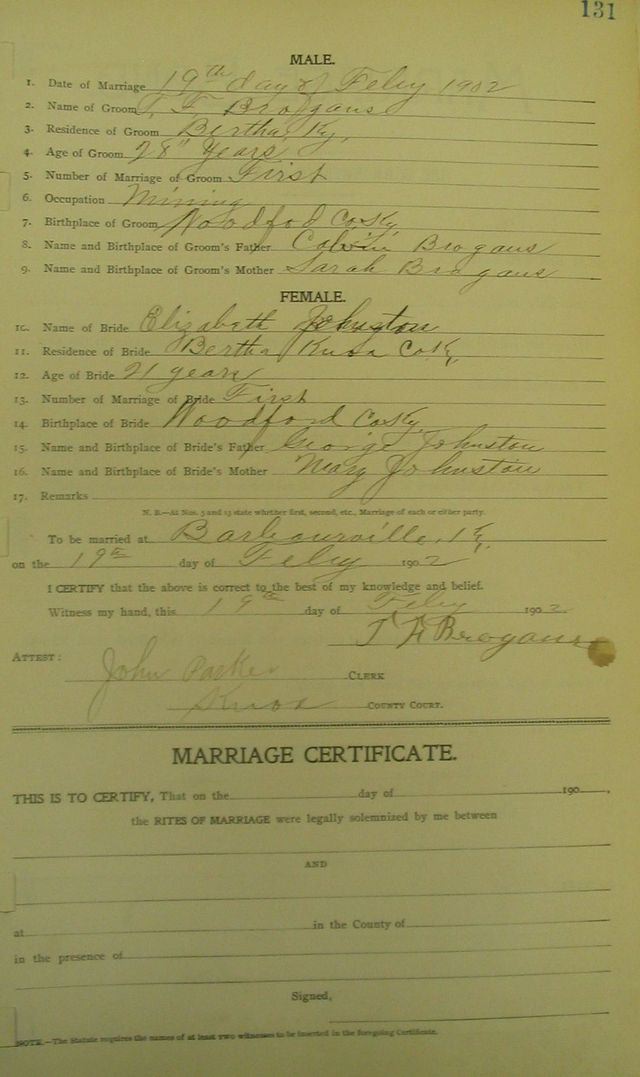 131
MALE.
1. Date of Marriage 19th day of Feby 1902
2. Name of Groom T. F. Brogans
3. Residence of Groom Bertha, Ky,
4. Age of Groom 28" Years
5. Number of Marriage of Groom First
6. Occupation Mining
7. Birthplace of Groom Woodfod Co. Ky.
8. Name and Birthplace of Groom's Father Brogans
9. Name and Birthplace of Groom's Mother Sarah Brogans
FEMALE.
10. Name of Bride Elizabeth Johnston
11. Residence of Bride Bertha Knox Co. Ky,
12. Age of Bride 21 years
13. Number of Marriage of Bride First
14. Birthplace of Bride Woodford Co Ky
15. Name and Birthplace of Bride's Father George Johnston
16. Name and Birthplace of Bride's Mother Mary Johnston
17. Remarks
N. B.—At Nos. 5 and 13 state whether first, second, etc., Marriage of each or either party.
To be married at Barbourville, Ky,
on the 19th day of Feby 1902
I CERTIFY that the above is correct to the best of my knowledge and belief.
Witness my hand, this 19th day of Feby 1902
Brogans
ATTEST: John Parker CLERK
Knox COUNTY COURT.
MARRIAGE CERTIFICATE.
THIS IS TO CERTIFY, That on the day of 190 ,
the RITES OF MARRIAGE were legally solemnized by me between
AND
at in the County of
in the presence of
Signed,
NOTE.—The Statute requires the names of at least two witnesses to be inserted in the foregoing Certificate.